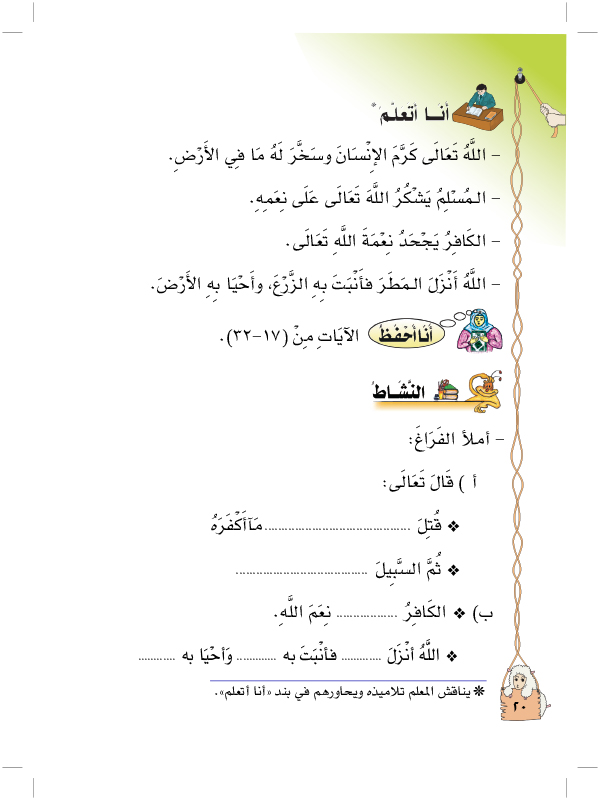 أَنَـا أَتعلّمُ *
- اللَّهُ تَعَالَى كَرَّمَ الإِنْسَانَ وسَخَّرَ لَهُ مَا فِي الأَرْضِ.
- المُسْلِمُ يَشْكُرُ اللَّهَ تَعَالَى عَلَى نِعَمِهِ.
- الكَافِرُ يَجْحَدُ نِعْمَةَ اللَّهِ تَعَالَى.
- اللَّهُ أَنْزَلَ المَطَرَ فأَنْبَتَ بِهِ الزَّرْعَ، وأَحْيَا بِهِ الأَرْضَ.
أَنَا أَحْفَظُ الآيَاتِ مِنْ (١٧-٣٢).
النَّشَـاطُ
- أملأ الفَرَاغَ:
أ ) قَالَ تَعَالَى:
❖ قُتِلَ ........................................... مَآأَكْفَرَهُ
❖ ثُمَّ السَّبِيلَ .......................................
ب) ❖ الكَافِرُ .................. نِعَمَ اللَّهِ.
❖ اللَّهُ أَنْزَلَ ............ فأَنْبَتَ به ............ وَأَحْيَا به ...........
* يناقش المعلم تلاميذه ويحاورهم في بند «أنا أتعلم».
٢٠